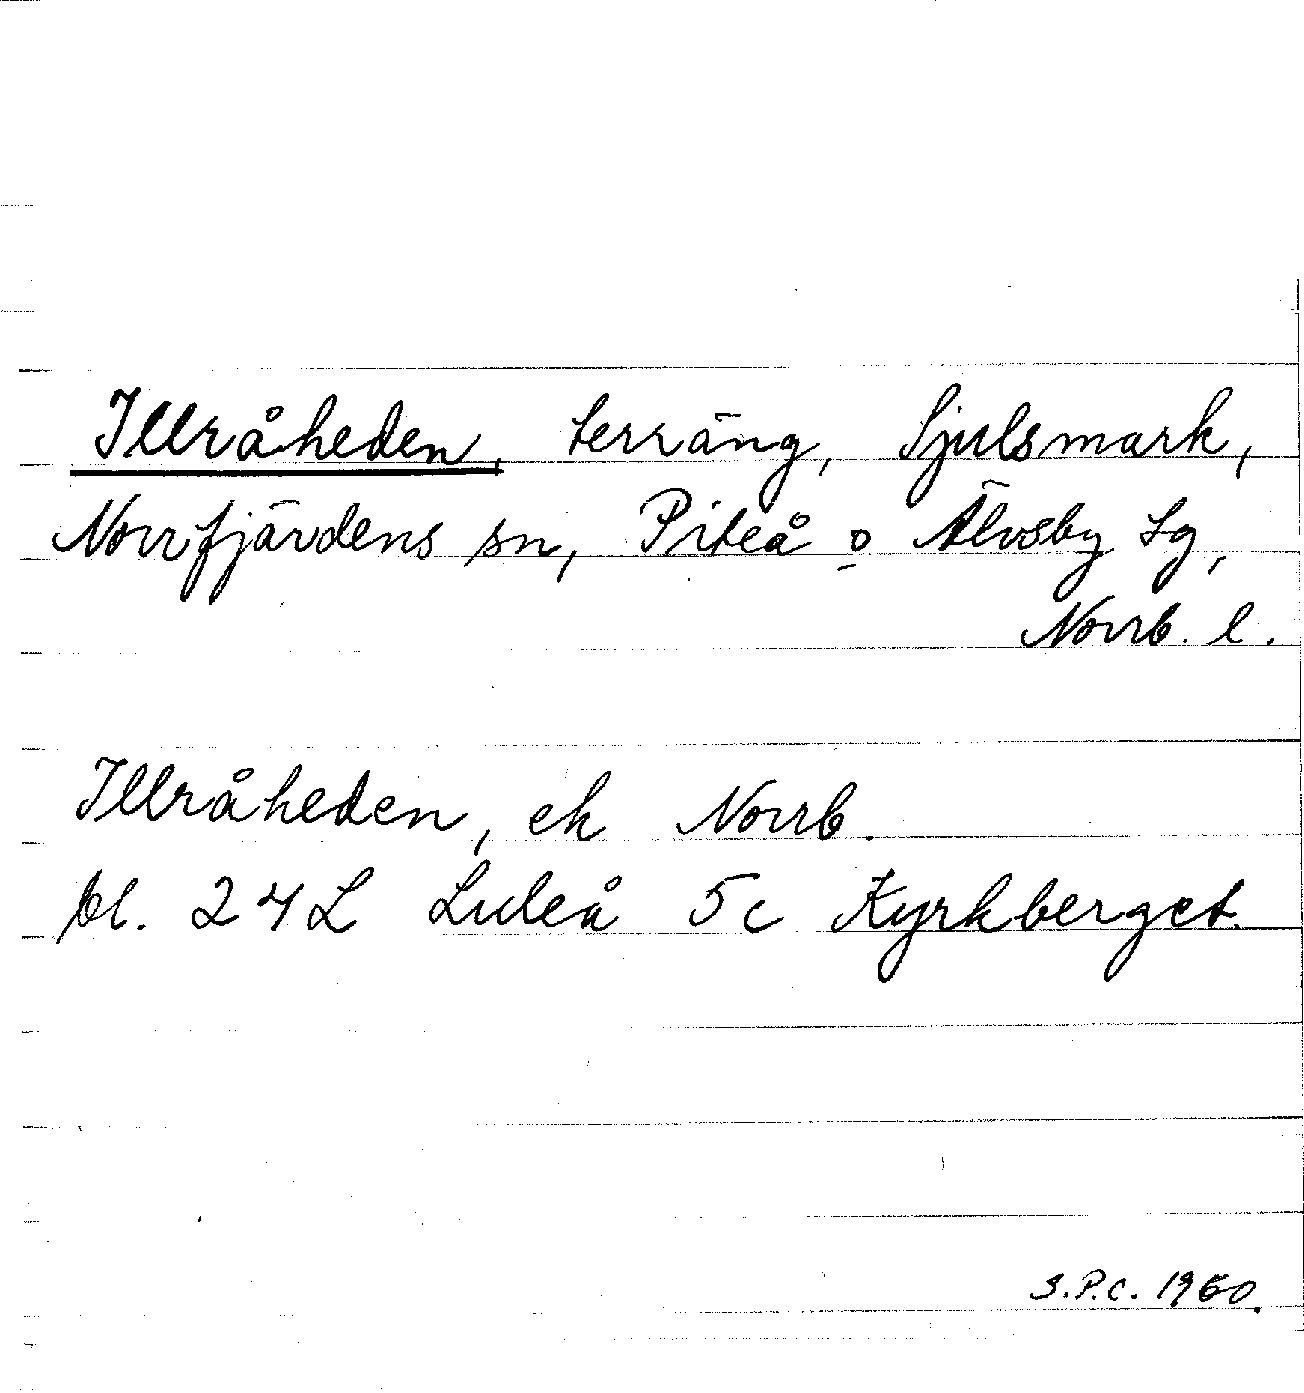 Illråheden, terräng, Sjulsmark,
Norrfjärdens sn, Piteå o Älvsby tg,
Norrb. l.
Illråheden, ek Norrb.
bl. 24L Luleå 5c Kyrkberget.
S.P.C. 1960.